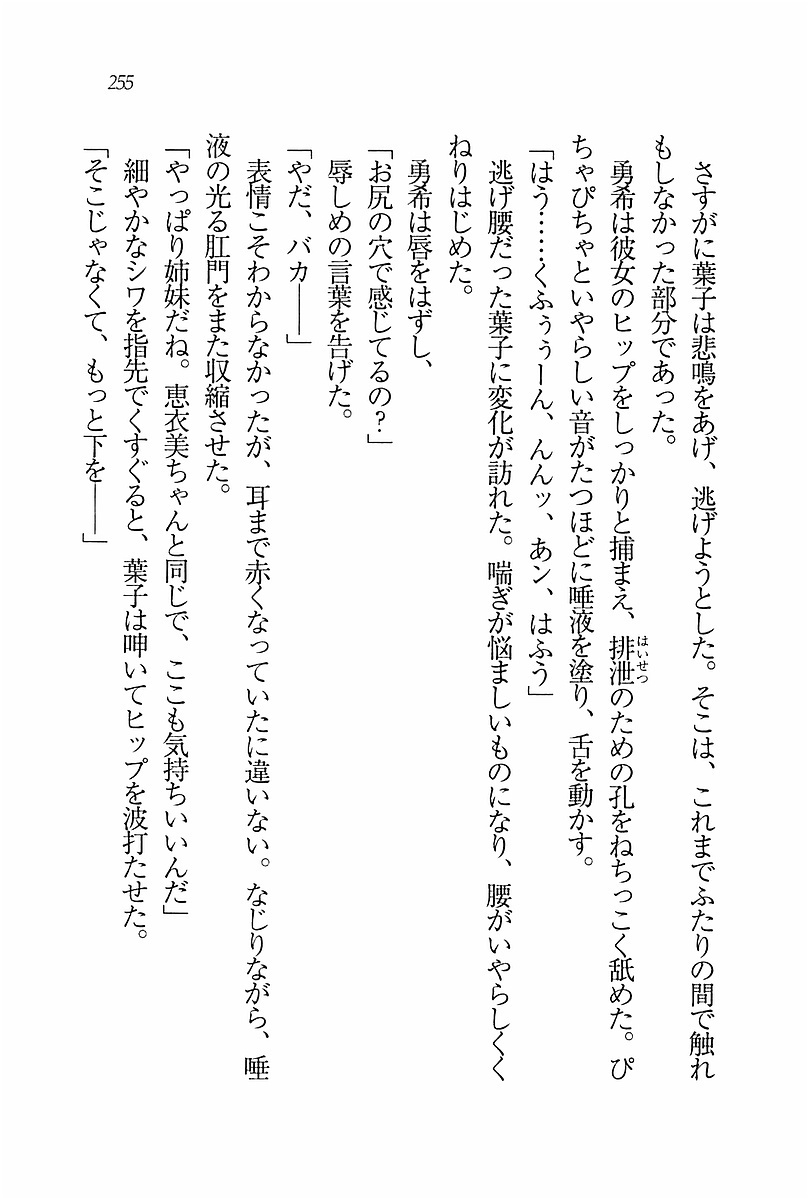 255
さすがに葉子は悲鳴をあげ、逃げようとした。そこは、これまでふたりの間で触れ
もしなかった部分であった。
勇希は彼女のヒップをしっかりと捕まえ、排泄のための孔をねちっこく舐めた。ぴ
はいせつ
ちゃぴちゃといやらしい音がたつほどに唾液を塗り、舌を動かす。
「はう……くふぅぅーん、んんッ、あン、はふう」
逃げ腰だった葉子に変化が訪れた。喘ぎが悩ましいものになり、腰がいやらしくく
ねりはじめた。
勇希は唇をはずし、
「お尻の穴で感じてるの？」
辱しめの言葉を告げた。
「やだ、バカ――」
表情こそわからなかったが、耳まで赤くなっていたに違いない。なじりながら、唾
液の光る肛門をまた収縮させた。
「やっぱり姉妹だね。恵衣美ちゃんと同じで、ここも気持ちいいんだ」
細やかなシワを指先でくすぐると、葉子は呻いてヒップを波打たせた。
「そこじゃなくて、もっと下を――」